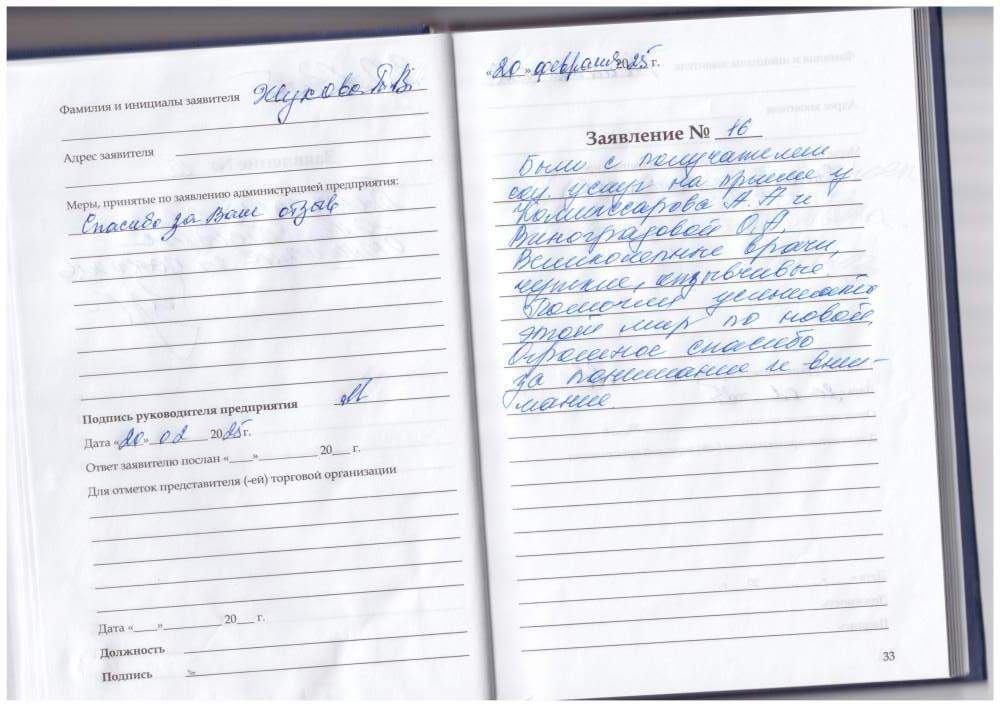 Фамилия и инициалы заявителя Жукова Т.В.
Адрес заявителя
Меры, принятые по заявлению администрацией предприятия:
Спасибо за Ваш отзыв
Подпись руководителя предприятия
Дата «20» 02 2025 г.
Ответ заявителю послан «___»_________ 20___ г.
Для отметок представителя (-ей) торговой организации
Дата «____»__________ 20___ г.
Должность
Подпись
«20» февраля 2025 г.
Заявление № 16
Были с получателем
соц. услуг на приеме у
Комиссарова А.А и
Виноградовой О.А.
Великолепные врачи,
чуткие, отзывчивые.
Помогли услышать
этот мир по новой.
Огромное спасибо
за понимание и вни-
мание.
33